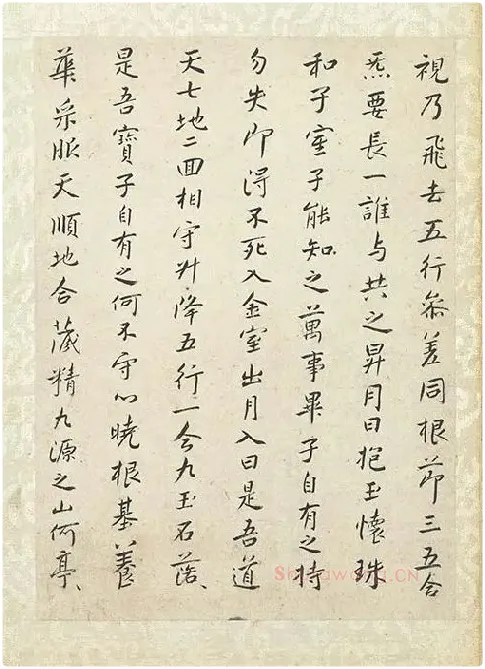 視乃飛去五行叅差同根節三五合
炁要長一誰与共之昇月日抱玉懷珠
和子室子能知之萬事畢子自有之持
勿失即得不死入金室出月入日是吾道
天七地二囬相守升降五行一合九玉石落、
是吾寶子自有之何不守心曉根基養
華采服天順地合藏精九源之山何亭、